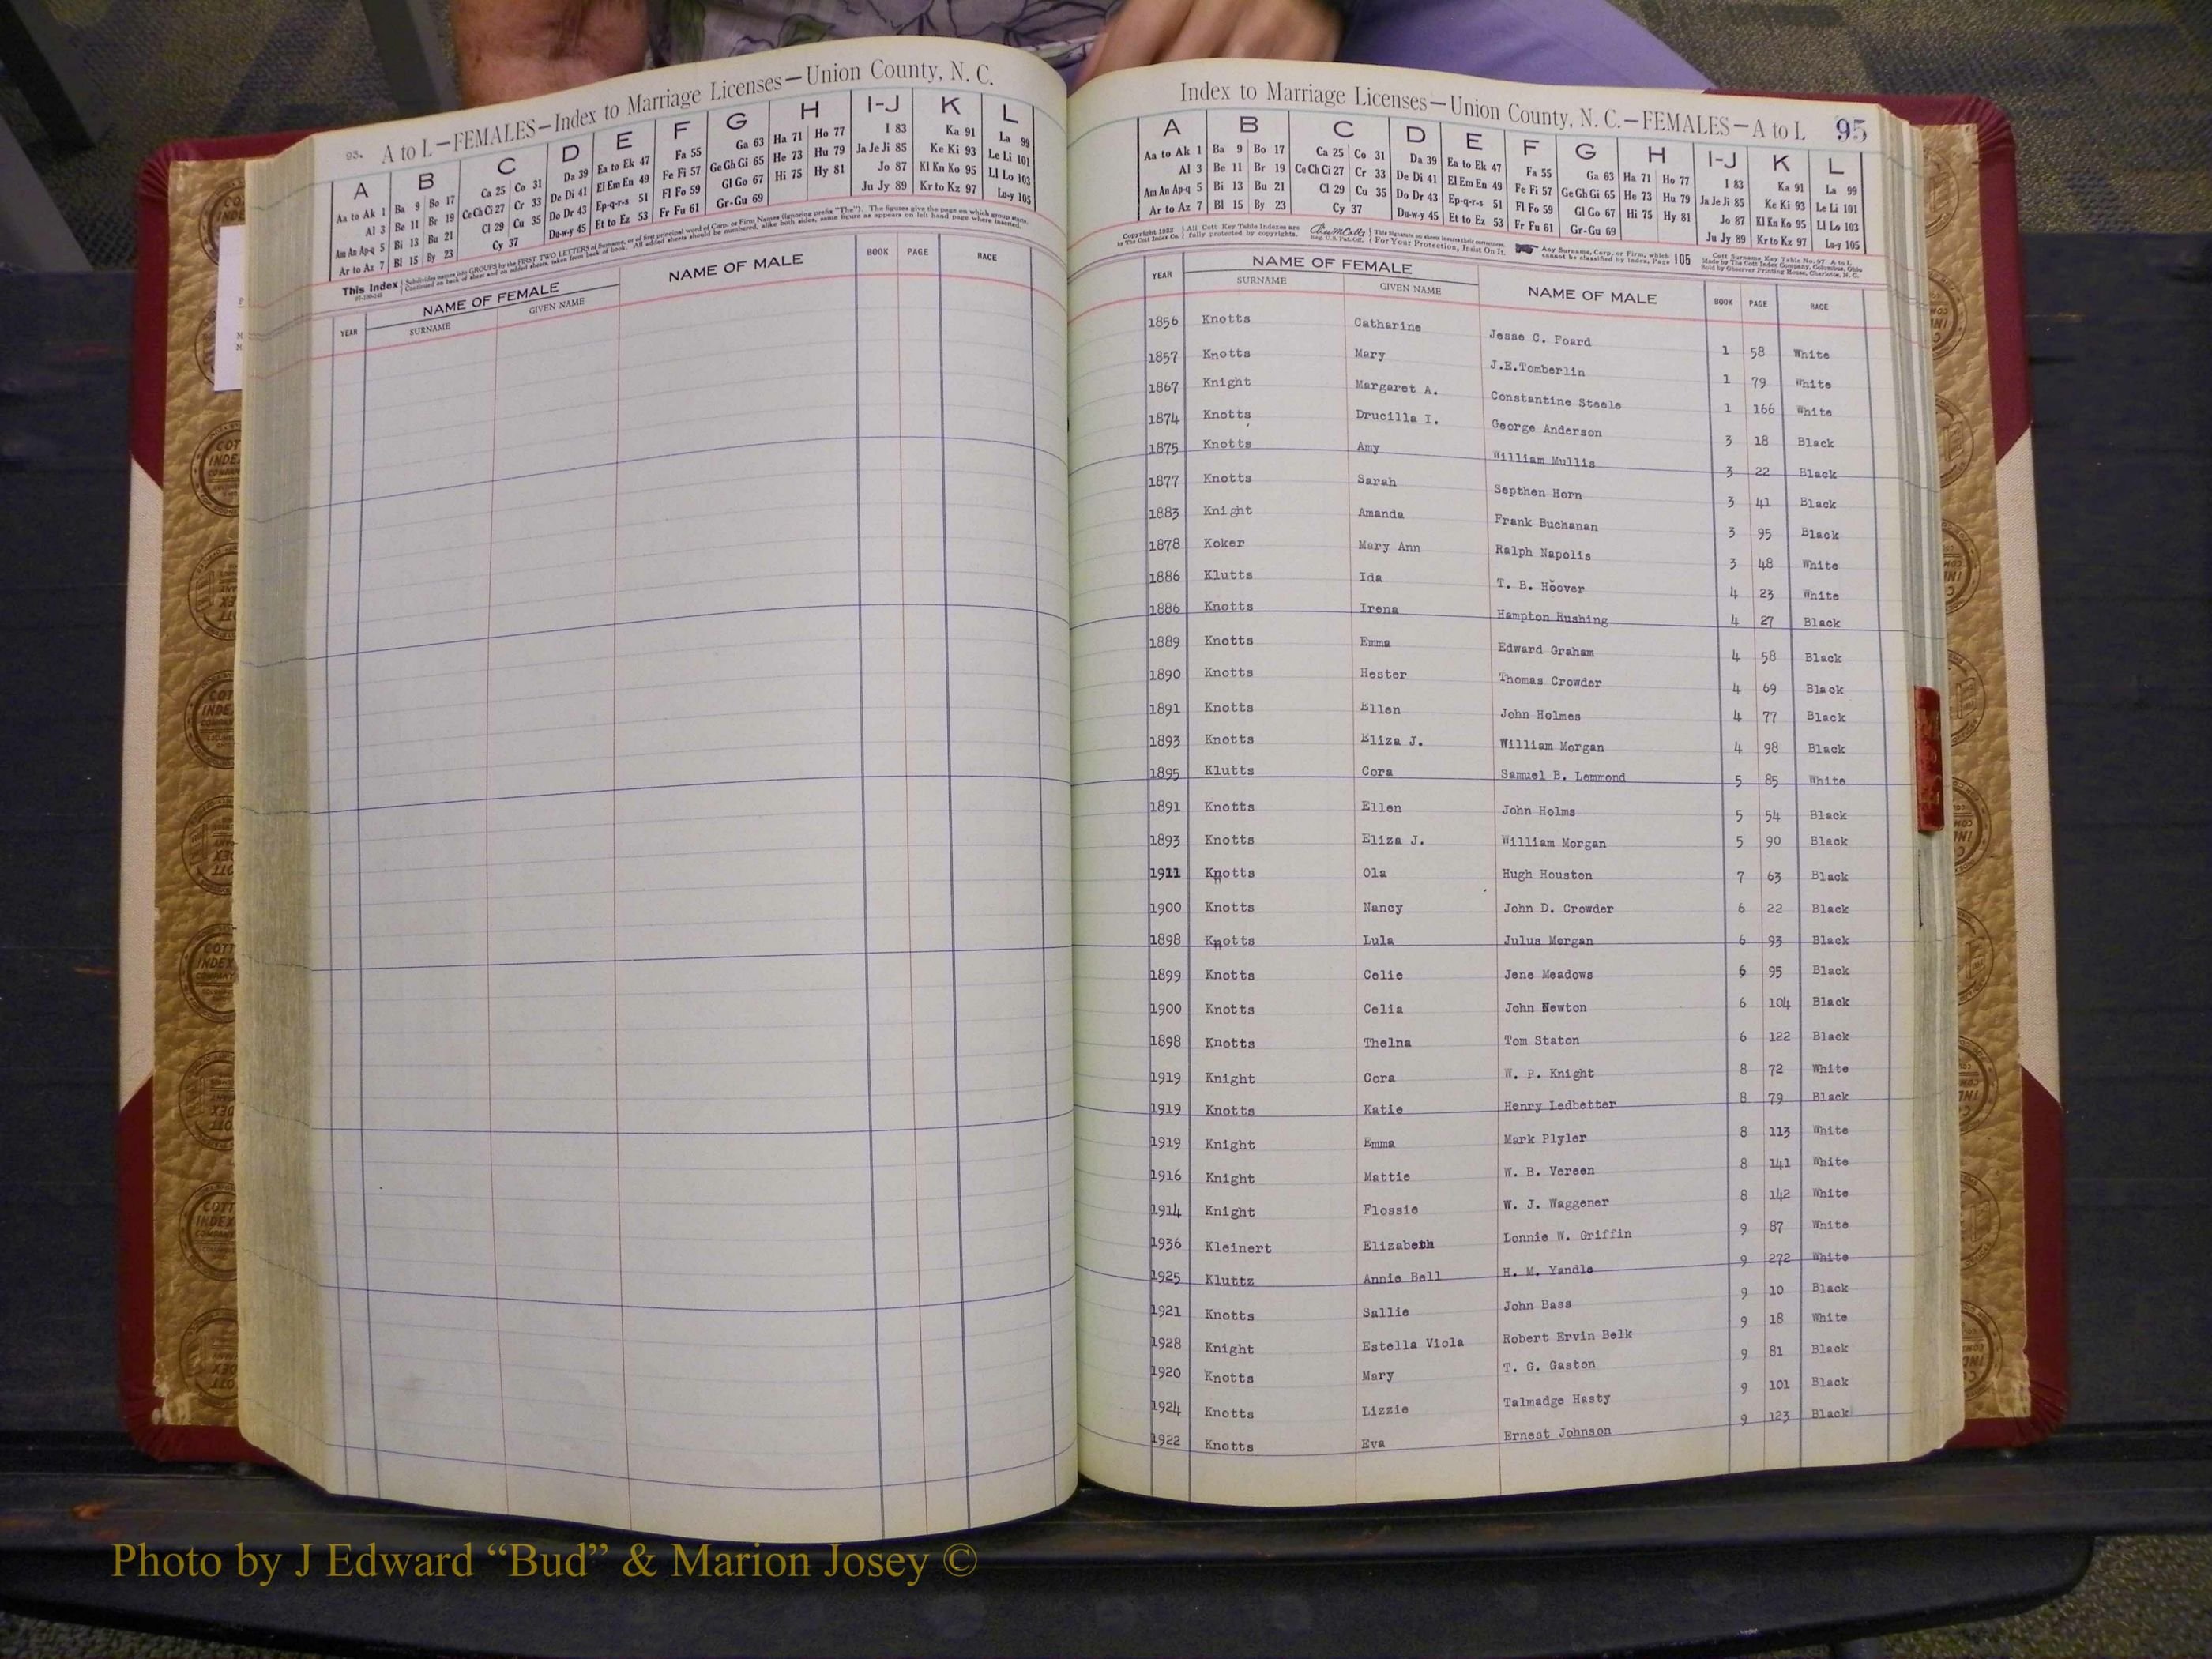 95. A to L—FEMALES—Index to Marriage Licenses—Union County, N. C.
A B C D E F G H I-J K L
Aa to Ak 1 Ba 9 Bo 17 Ca 25 Co 31 Da 39 Ea to Ek 47 Fa 55 Ga 63 Ha 71 Ho 77 I 83 Ka 91 La 99
Al 3 Be 11 Br 19 Ce Ch Ci 27 Cr 33 De Di 41 El Em En 49 Fe Fi 57 Ge Gh Gi 65 He 73 Hu 79 Ja Je Ji 85 Ke Ki 93 Le Li 101
Am An Ap-q 5 Bi 13 Bu 21 Cl 29 Cu 35 Do Dr 43 Ep-q-r-s 51 Fl Fo 59 Gl Go 67 Hi 75 Hy 81 Jo 87 Kl Kn Ko 95 Ll Lo 103
Ar to Az 7 Bl 15 By 23 Cy 37 Du-w-y 45 Et to Ez 53 Fr Fu 61 Gr-Gu 69 Ju Jy 89 Kr to Kz 97 Lu-y 105
This Index
YEAR NAME OF FEMALE NAME OF MALE BOOK PAGE RACE
SURNAME GIVEN NAME
Index to Marriage Licenses—Union County, N. C.—FEMALES—A to L 95
A B C D E F G H I-J K L
Aa to Ak 1 Ba 9 Bo 17 Ca 25 Co 31 Da 39 Ea to Ek 47 Fa 55 Ga 63 Ha 71 Ho 77 I 83 Ka 91 La 99
Al 3 Be 11 Br 19 Ce Ch Ci 27 Cr 33 De Di 41 El Em En 49 Fe Fi 57 Ge Gh Gi 65 He 73 Hu 79 Ja Je Ji 85 Ke Ki 93 Le Li 101
Am An Ap-q 5 Bi 13 Bu 21 Cl 29 Cu 35 Do Dr 43 Ep-q-r-s 51 Fl Fo 59 Gl Go 67 Hi 75 Hy 81 Jo 87 Kl Kn Ko 95 Ll Lo 103
Ar to Az 7 Bl 15 By 23 Cy 37 Du-w-y 45 Et to Ez 53 Fr Fu 61 Gr-Gu 69 Ju Jy 89 Kr to Kz 97 Lu-y 105
All Cott Key Table Indexes are fully protected by copyrights. For Your Protection, Insist On It. Any Surname, Corp. or Firm, which cannot be classified by index, Page 105
YEAR NAME OF FEMALE NAME OF MALE BOOK PAGE RACE
SURNAME GIVEN NAME
1856 Knotts Catharine Jesse C. Foard 1 58 White
1857 Knotts Mary J.E.Tomberlin 1 79 White
1867 Knight Margaret A. Constantine Steele 1 166 White
1874 Knotts Drucilla I. George Anderson 3 18 Black
1875 Knotts Amy William Mullis 3 22 Black
1877 Knotts Sarah Septhen Horn 3 41 Black
1883 Knight Amanda Frank Buchanan 3 95 Black
1878 Koker Mary Ann Ralph Napolis 3 48 White
1886 Klutts Ida T. B. Hoover 4 23 White
1886 Knotts Irena Hampton Rushing 4 27 Black
1889 Knotts Emma Edward Graham 4 58 Black
1890 Knotts Hester Thomas Crowder 4 69 Black
1891 Knotts Ellen John Holmes 4 77 Black
1893 Knotts Eliza J. William Morgan 4 98 Black
1895 Klutts Cora Samuel B. Lemmond 5 85 White
1891 Knotts Ellen John Holms 5 54 Black
1893 Knotts Eliza J. William Morgan 5 90 Black
1911 Knotts Ola Hugh Houston 7 63 Black
1900 Knotts Nancy John D. Crowder 6 22 Black
1898 Knotts Lula Julus Morgan 6 93 Black
1899 Knotts Celie Jene Meadows 6 95 Black
1900 Knotts Celia John Newton 6 104 Black
1898 Knotts Thelna Tom Staton 6 122 Black
1919 Knight Cora W. P. Knight 8 72 White
1919 Knotts Katie Henry Ledbetter 8 79 Black
1919 Knight Emma Mark Plyler 8 113 White
1916 Knight Mattie W. B. Vereen 8 141 White
1914 Knight Flossie W. J. Waggener 8 142 White
1936 Kleinert Elizabeth Lonnie W. Griffin 9 87 White
1925 Kluttz Annie Bell H. M. Yandle 9 272 White
1921 Knotts Sallie John Bass 9 10 Black
1928 Knight Estella Viola Robert Ervin Belk 9 18 White
1920 Knotts Mary T. G. Gaston 9 81 Black
1924 Knotts Lizzie Talmadge Hasty 9 101 Black
1922 Knotts Eva Ernest Johnson 9 123 Black
Photo by J Edward “Bud” & Marion Josey ©